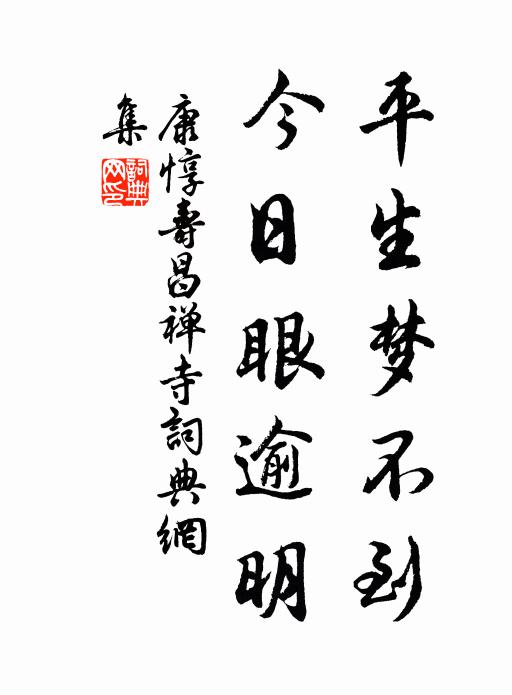 平生梦不到
今日眼逾明
康惇寿昌禅寺詞典網
集
詞典
网印